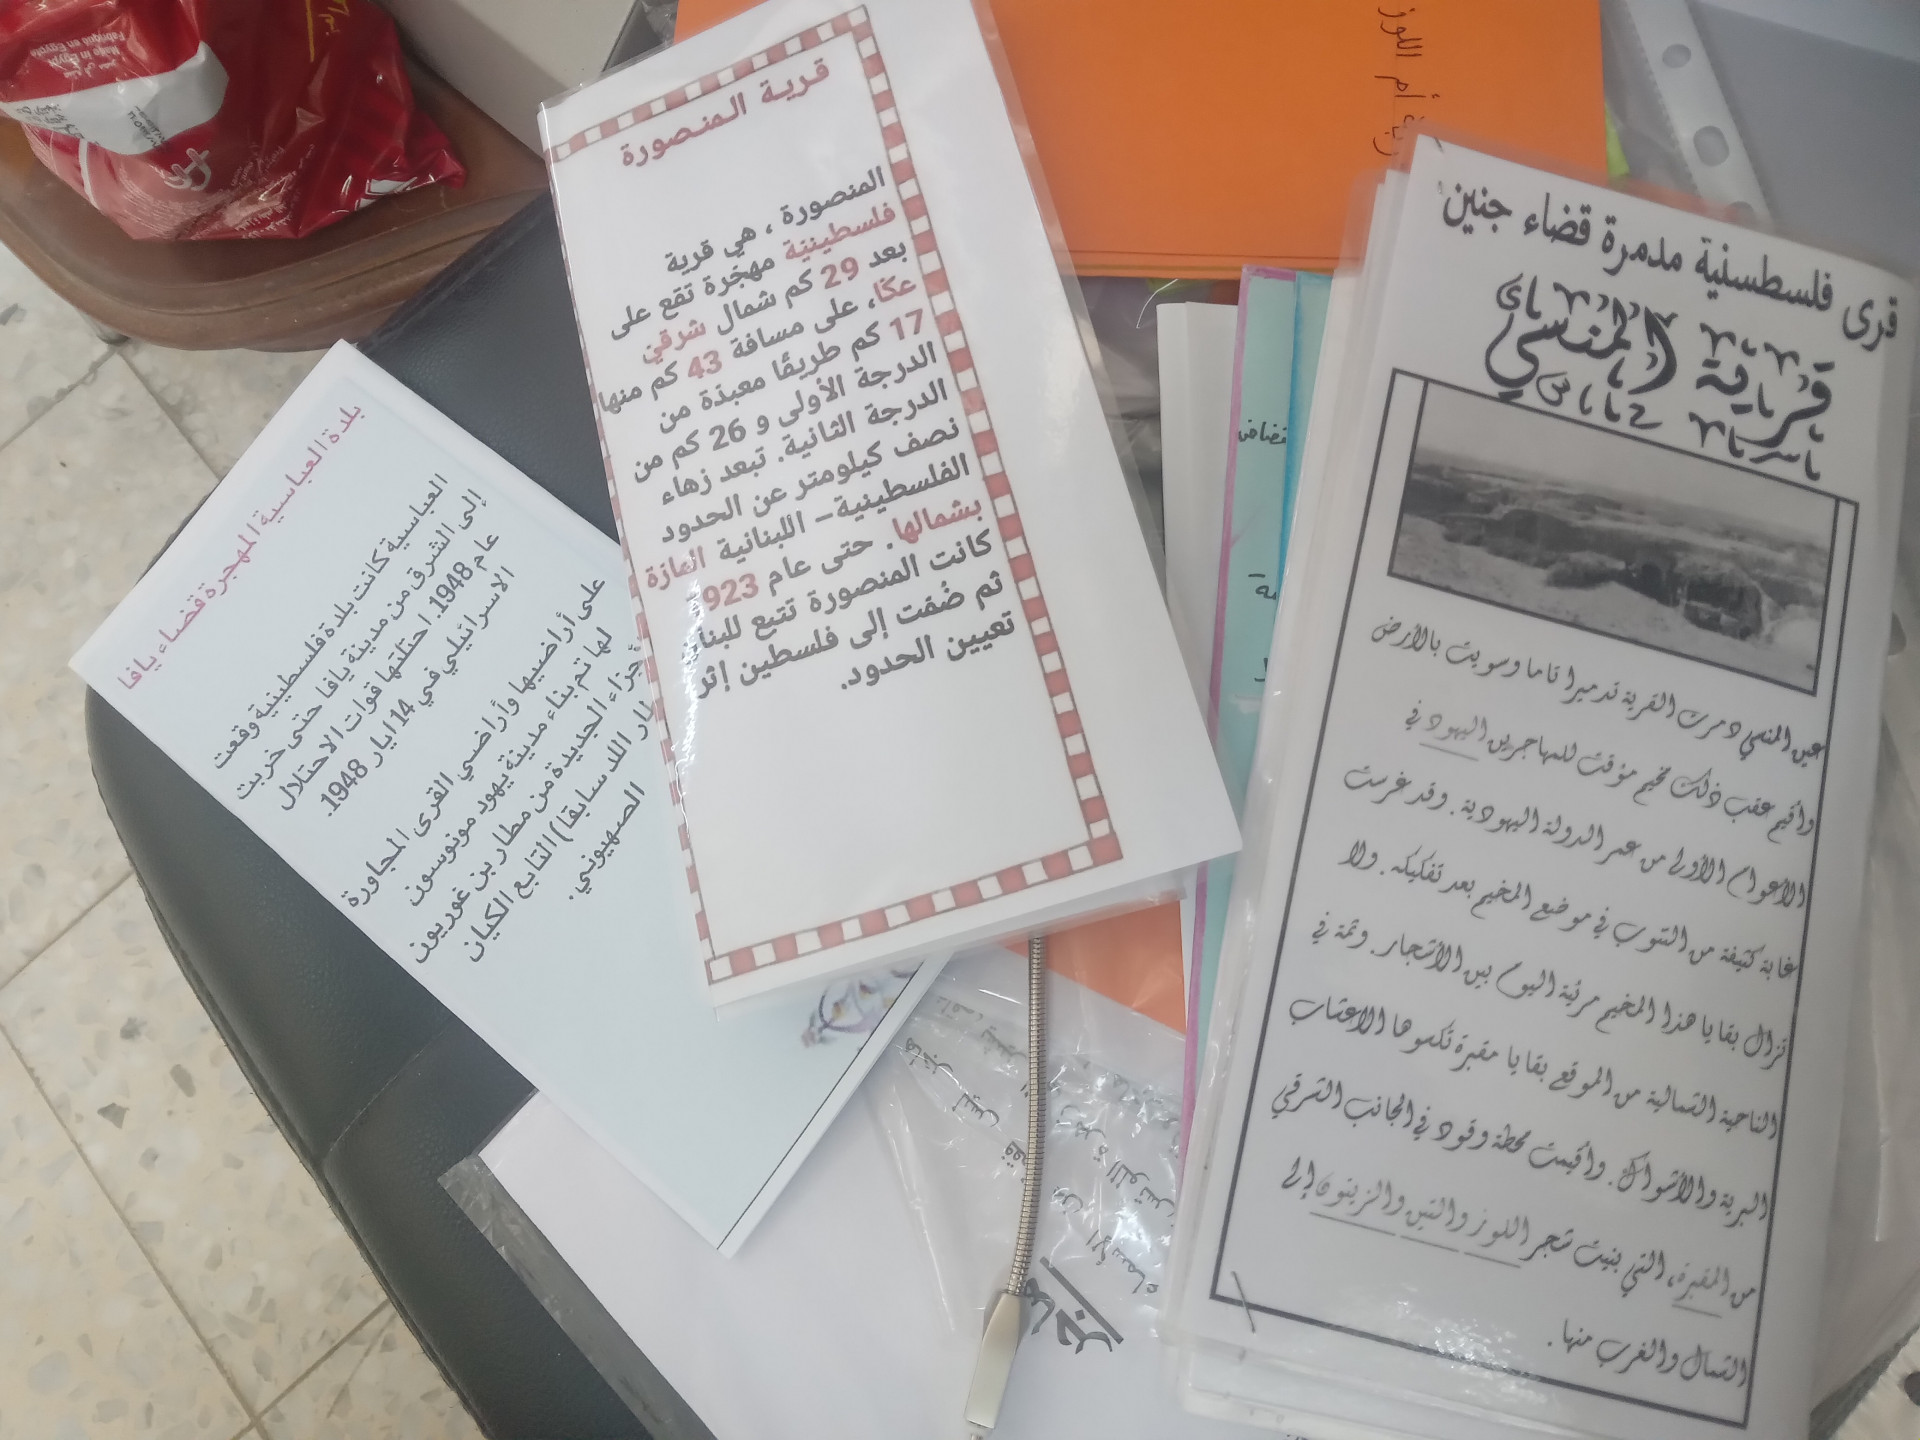 قرية المنصورة
المنصورة ، هي قرية
فلسطينيّة مهجّرة تقع على
بعد 29 كم شمال شرقيّ
عكّا، على مسافة 43 كم منها
17 كم طريقًا معبدّة من
الدرجة الأولى و 26 كم من
الدرجة الثانية. تبعد زهاء
نصف كيلومتر عن الحدود
الفلسطينية– اللبنانية المارّة
بشمالها. حتى عام 923
كانت المنصورة تتبع للبنا
ثم ضُمّت إلى فلسطين إثر
تعيين الحدود.
قرى فلسطسنية مدمرة قضاء جنين
قرية المنسي
عين المنسي دمرت القرية تدميرا تاما وسويت بالأرض
وأقيم عقب ذلك مخيم مؤقت للمهاجرين اليهود في
الأعوام الأولى من عمر الدولة اليهودية. وقد غرست
غابة كثيفة من التنوب في موضع المخيم بعد تفكيكه. ولا
تزال بقايا هذا المخيم مرئية اليوم بين الأشجار. وثمة في
الناحية الشمالية من الموقع بقايا مقبرة تكسوها الاعشاب
البرية والأشواك. وأقيمت محطة وقود في الجانب الشرقي
من المقبرة، التي بنيت شجر اللوز والتين والزيتون إلى
الشمال والغرب منها.
بلدة العباسية المهجرة قضاء يافا
العباسية كانت بلدة فلسطينية وقعت
إلى الشرق من مدينة يافا حتى خربت
عام 1948. احتلتها قوات الاحتلال
الاسرائيلي في 14 ايار 1948.
على أراضيها وأراضي القرى المجاورة
لها تم بناء مدينة يهود مونوسون
أجزاء الجديدة من مطار بن غوريون
اللد سابقا) التابع الكيان
الصهيوني.
أم اللوز
قضاء
Made in Egypt
Fabriqué en Egypte